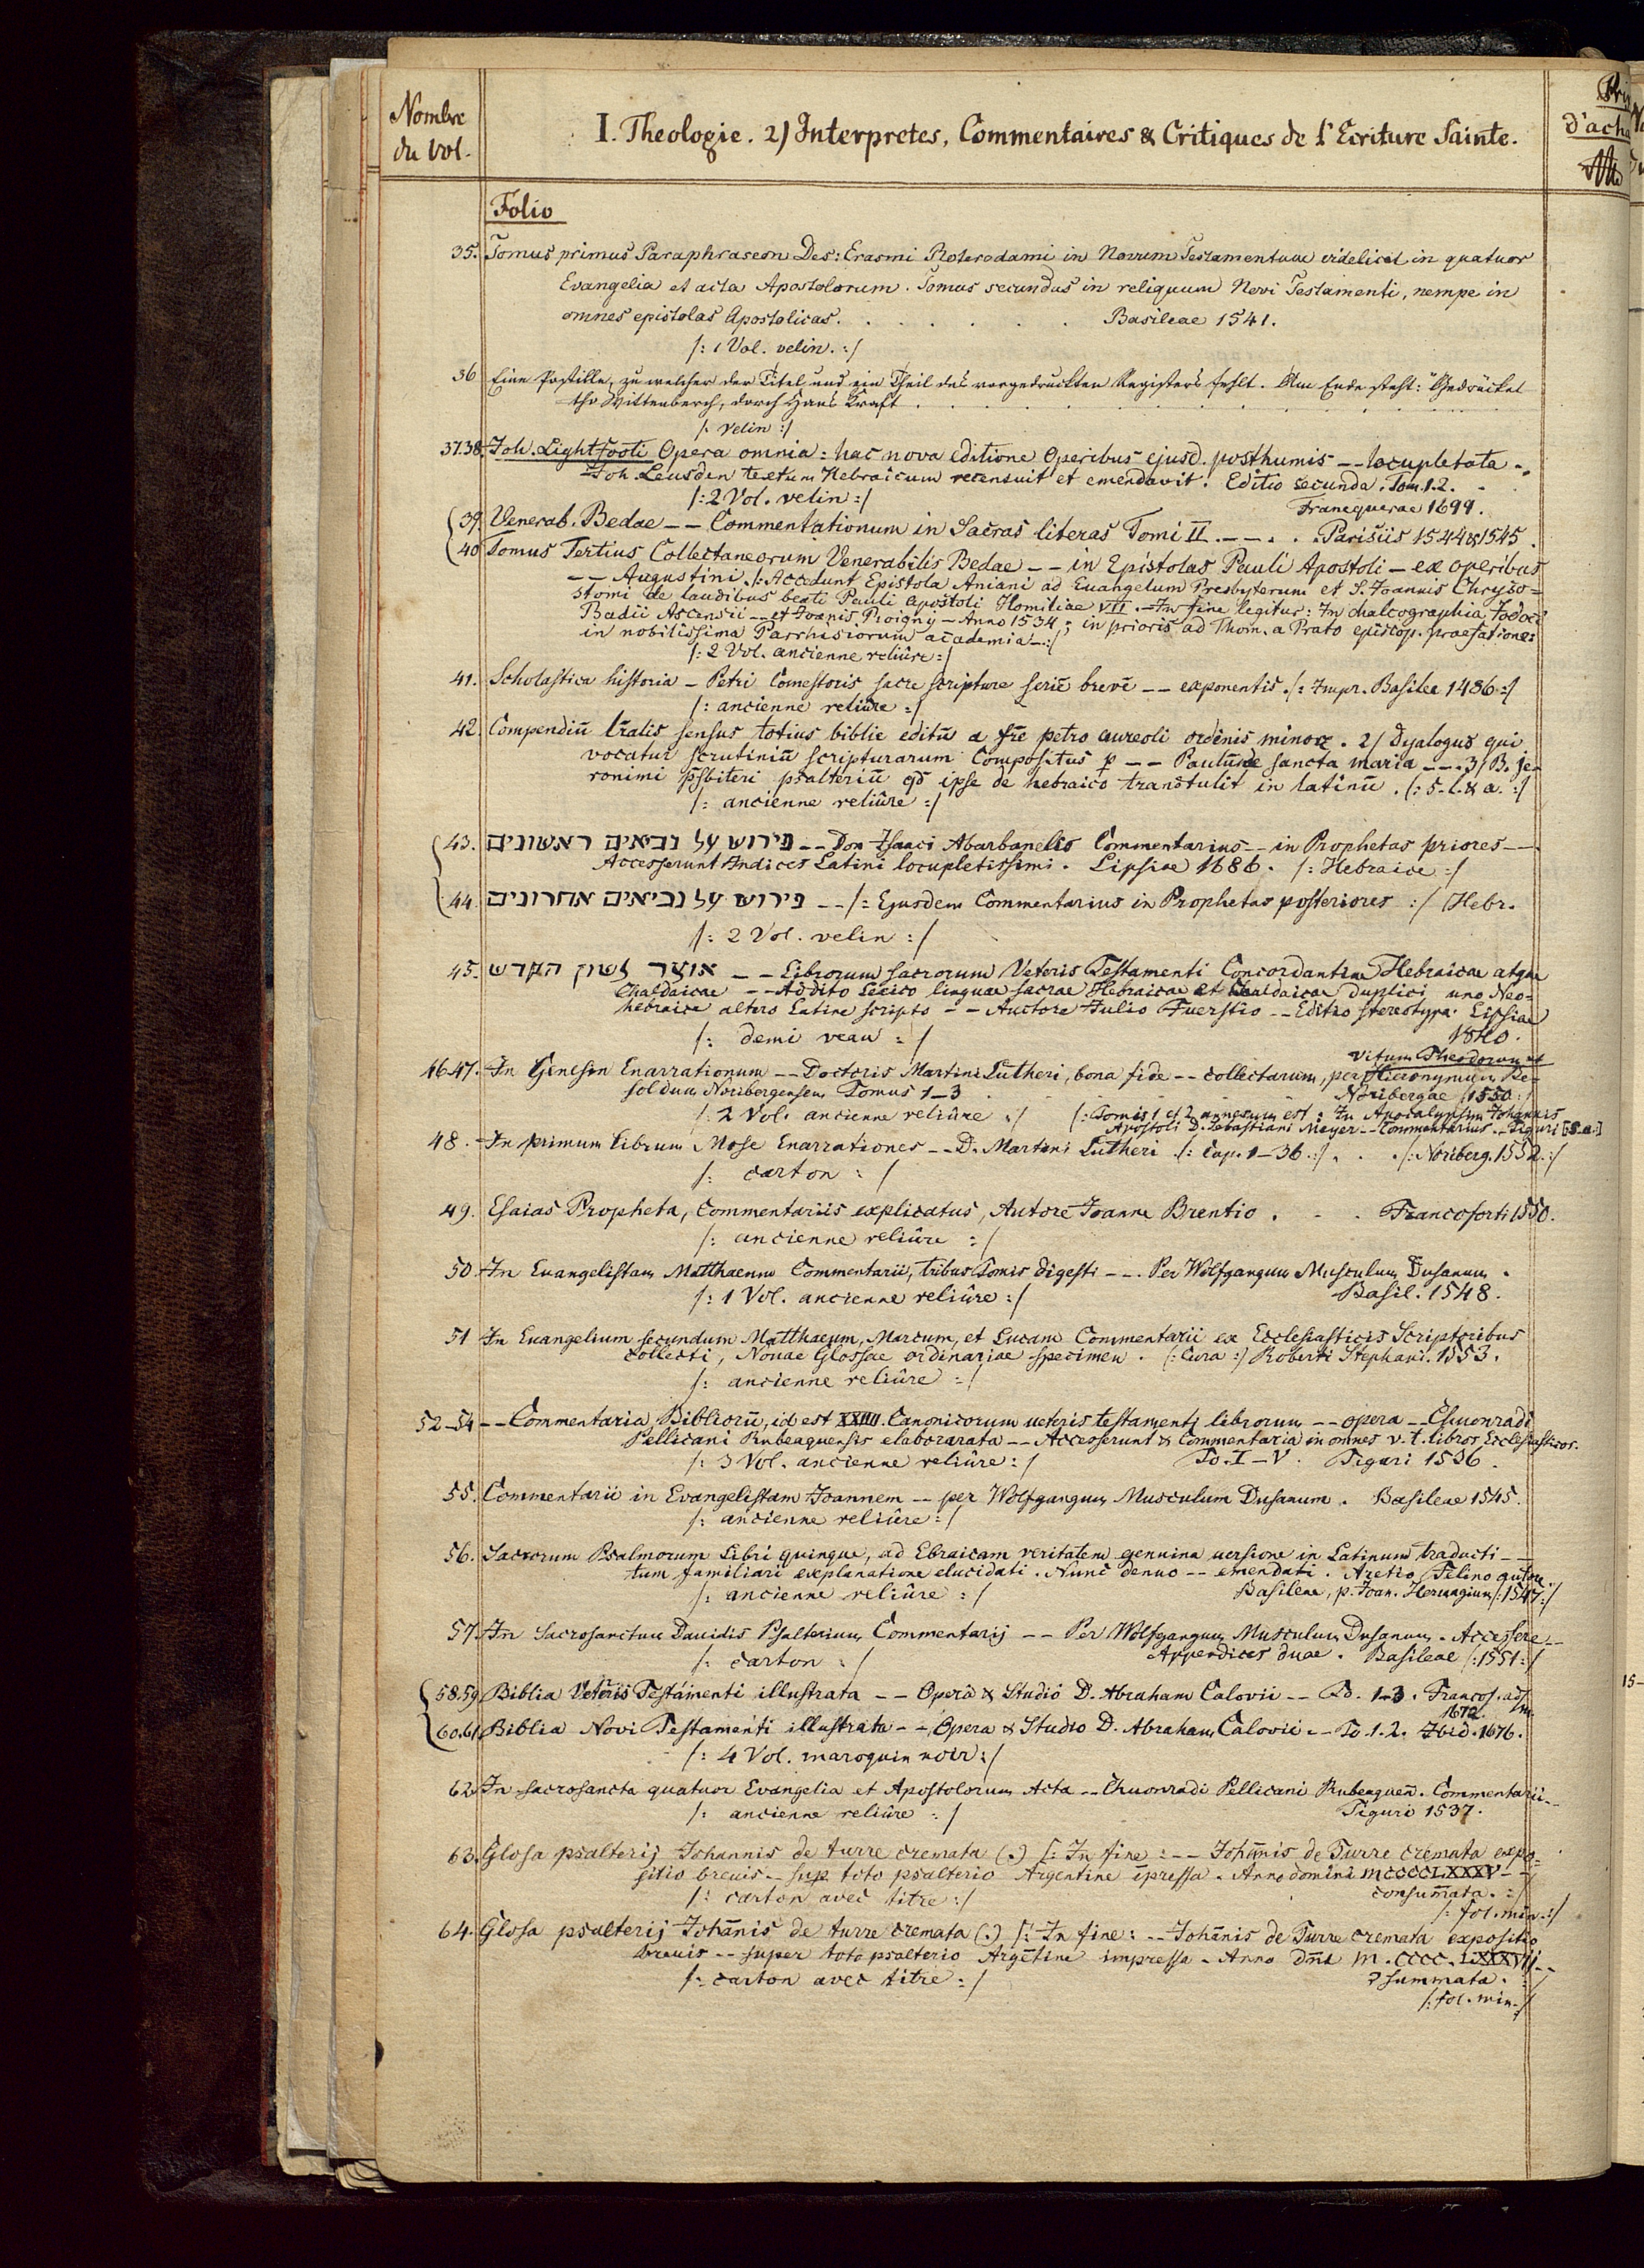 Nombre
du Vol.
I. Theologie. 2) Interpretes, Commentaires & Critiques de l'Ecriture Sainte.
d'acha
Folio
35. Tomus primus Paraphraseon Des: Erasmi Roterodami in Novum Testamentum videlicet in quatuor
Evangelia et acta Apostolorum. Tomus secundus in reliquum Novi Testamenti, nempe in
omnes epistolas Apostolicas. . . . . . . Basileae 1541.
/: 1 Vol. velin. :/
36 Eine Postille, zu welcher der Titel und ein Theil des vorgedruckten Registers fehlt. Am Ende steht: "Gedrücket
tho Wittenberch, dorch Hans Kraft . . . . . . .
/: velin :/
37.38. Joh. Lightfooti Opera omnia: hac nova editione Operibus ejusd. posthumis -- locupletata -.
Joh. Leusden textum Hebraicum recensuit et emendavit. Editio secunda. Tom. 1.2. .
/: 2 Vol. velin :/ Franequerae 1699.
39 Venerab. Bedae -- Commentationum in Sacras literas Tomi II. -- . . . Parisiis 1544 & 1545.
40 Tomus Tertius Collectaneorum Venerabilis Bedae -- in Epistolas Pauli Apostoli - ex operibus
-- Augustini. /: Accedunt Epistola Aniani ad Euangelum Presbyterum et S. Joannis Chryso=
stomi de laudibus beati Pauli apostoli Homiliae VII. - In fine legitur: In chalcographia Jodoci
Badii Ascensii -- et Joanis Roigny - Anno 1534; in prioris ad Thom. a Prato episcop. praefatione:
in nobilissima Parrhisiorum academia -:/
/: 2 Vol. ancienne reliûre :/
41. Scholastica historia - Petri Comestoris sacre scripture seriē brevē -- exponentis. /: Impr. Basilee 1486 :/
/: ancienne reliûre :/
42 Compendiū lr̄alis sensus totius biblie editū a fr̄e petro aureoli ordinis minoꝝ. 2/ Dyalogus qui
vocatur scrutiniū scripturarum Compositus p -- Paulū de sancta maria --. 3/ B. je-
ronimi p̄sbiteri psalteriū qd̄ ipse de hebraico transtulit in latinū. /: s. l. & a. :/
/: ancienne reliûre :/
43. פירוש על נביאים ראשונים -- Don Isaaci Abarbanelis Commentarius -- in Prophetas priores --
Accesserunt Indices Latini locupletissimi. Lipsiae 1686. /: Hebraice :/
44. פירוש על נביאים אחרונים -- /: Ejusdem Commentarius in Prophetas posteriores :/ (Hebr.
/: 2 Vol. velin :/
45. אוצר לשון הקדש -- Librorum sacrorum Veteris Testamenti Concordantiae Hebraicae atque
Chaldaicae -- Addito Lexico linguae sacrae Hebraicae et Chaldaicae duplici uno Neo=
hebraice altero Latine scripto -- Auctore Julio Fuerstio -- Editio stereotypa. Lipsiae
/: demi veau :/ 1840.
Vitum Theodorum et
46.47. In Genesin Enarrationum -- Doctoris Martini Lutheri, bona fide -- collectarum, per Hieronymum Be-
soldum Noribergensem Tomus 1-3 . . . . Noribergae /:1550:/
/: 2 Vol. ancienne reliûre :/ /: Tomis 1 et 2 annexum est: In Apocalypsim Johannis
Apostoli D. Sebastiani Meyer -- Commentarius. - Tiguri [s.a.]
48. In primum librum Mose Enarrationes -- D. Martini Lutheri /: Cap. 1-36. :/ . . . /: Noriberg. 1552. :/
/: carton :/
49. Esaias Propheta, Commentariis explicatus, Autore Joanne Brentio . . . Francoforti 1550.
/: ancienne reliûre :/
50. In Euangelistam Matthaeum Commentarii, tribus Tomis digesti --. Per Wolfgangum Musculum Dusanum.
/: 1 Vol. ancienne reliûre :/ Basil. 1548.
51 In Euangelium secundum Matthaeum, Marcum, et Lucam Commentarii ex Ecclesiasticis Scriptoribus
collecti, Nouae Glossae ordinariae specimen. /: Cura :/ Roberti Stephani. 1553.
/: ancienne reliûre :/
52-54 -- Commentaria Bibliorū, id est XXIIII. Canonicorum ueteris testamenti librorum -- opera -- Chuonradi
Pellicani Rubeaquensis elaborarata -- Accesserunt & Commentaria in omnes v. t. libros Ecclesiasticos.
/: 3 Vol. ancienne reliûre :/ To. I-V. Tiguri 1536.
55. Commentarii in Evangelistam Joannem -- per Wolfgangum Musculum Dusanum. Basileae 1545.
/: ancienne reliûre :/
56. Sacrorum Psalmorum Libri quinque, ad Ebraicam veritatem genuina uersione in Latinum traducti --
tum familiari explanatione elucidati. Nunc denuo -- emendati. Aretio Felino autore.
/: ancienne reliûre :/ Basileae, p. Joan. Heruagium /:1547:/
57. In Sacrosanctum Dauidis Psalterium Commentarij -- Per Wolfgangum Musculum Dusanum. Accessere --
/: carton :/ Appendices duae. Basileae /:1551:/
58.59 Biblia Veteris Testamenti illustrata -- Opera & Studio D. Abraham Calovii -- To. 1-3. Francof. ad M.
1672.
60.61. Biblia Novi Testamenti illustrata --, Opera & Studio D. Abraham Calovii -- To. 1.2. Ibid. 1676.
/: 4 Vol. maroquin noir :/
62. In sacrosancta quatuor Evangelia et Apostolorum Acta -- Chuonradi Pellicani Rubeaqueñ. Commentarii --
/: ancienne reliûre :/ Tiguri 1537.
63. Glosa psalterij Johannis de turre cremata (.) /: In fine: -- Johānis de Turre cremata expo=
sitio breuis -- sup toto psalterio Argentine īpressa. Anno domini MCCCCLXXXV --
/: carton avec titre :/ consum̄ata. :/
/: fol. min. :/
64. Glosa psalterij Johānis de turre cremata (.) /: In fine: -- Johānis de Turre cremata expositio
breuis -- super toto psalterio Argētine impressa. Anno dn̄i M. CCCC. LXXXVij --
/: carton avec titre :/ ꝯsummata. :/
/: fol. min. :/